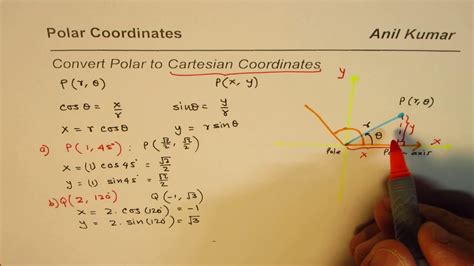 Polar Coordinates
Anil Kumar
Convert Polar to Cartesian Coordinates
P(r, θ)
P(x, y)
cosθ = x/r
sinθ = y/r
x = r cosθ
y = r sinθ
a) P(1, 45°) : P(√2/2, √2/2)
x = (1) cos 45° = √2/2
y = (1) sin 45° = √2/2
b) Q(2, 120°) Q(-1, √3)
x = 2. cos(120°) = -1
y = 2. sin(120°) = √3
y
P(r, θ)
r
θ
y
Pole
x
axis
x